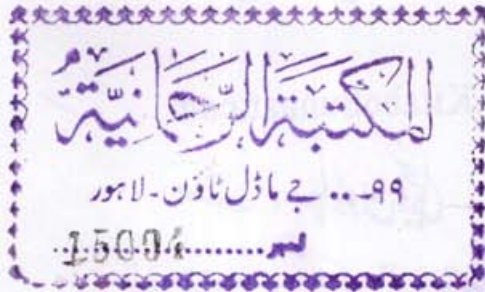 المکتبۃ الرحمانیۃ
۹۹... جے ماڈل ٹاؤن - لاہور
نمبر........15004